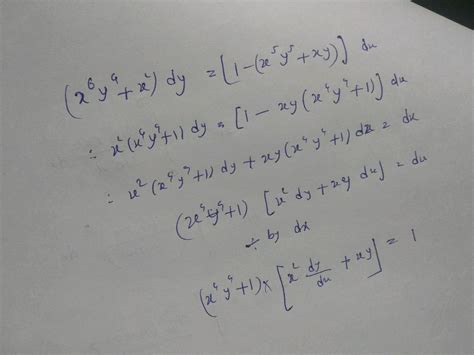 (x⁶y⁴+x²) dy = [1-(x⁵y⁵+xy)] dx
∴ x²(x⁴y⁴+1) dy = [1 - xy(x⁴y⁴+1)] dx
∴ x²(x⁴y⁴+1) dy + xy(x⁴y⁴+1) dx = dx
(x⁴y⁴+1) [x² dy + xy dx] = dx
÷ by dx
(x⁴y⁴+1) × [x² dy/dx + xy] = 1